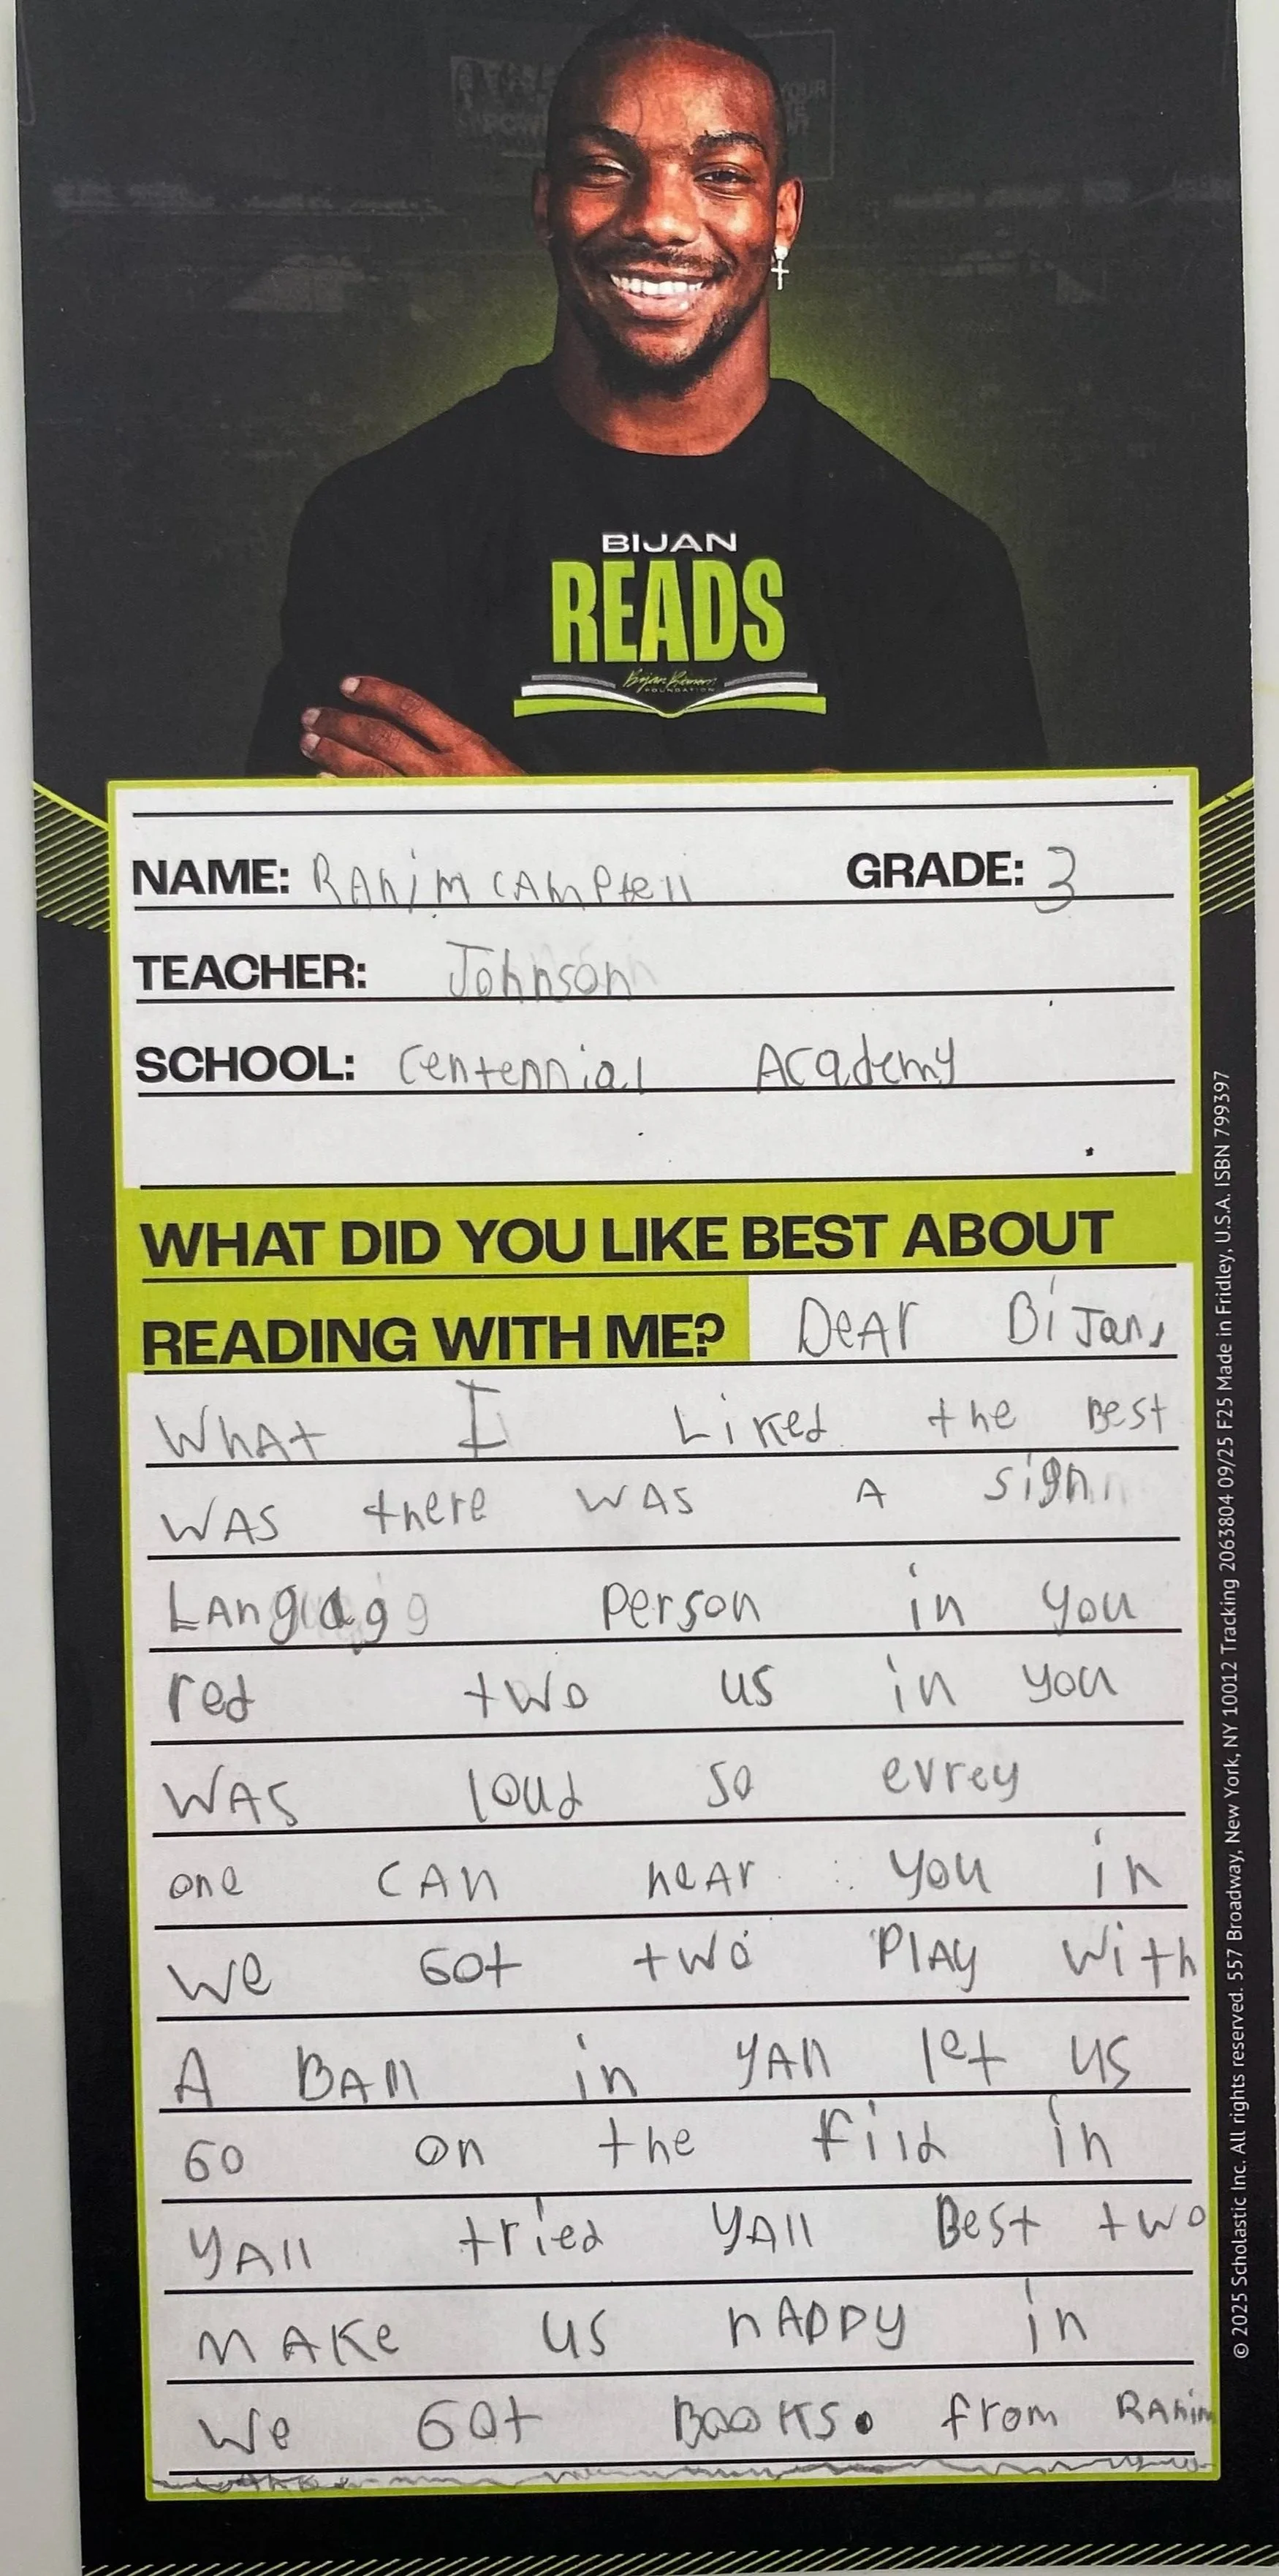 BIJAN
READS
Bijan Robinson
FOUNDATION
NAME: RAhim CAMPtell GRADE: 3
TEACHER: Johnson
SCHOOL: Centennial Academy
WHAT DID YOU LIKE BEST ABOUT
READING WITH ME? DeAr BiJan,
WhAt I Liked the Best
WAS there WAS A sign
LAngagg person in you
red two us in you
WAS loud so evrey
one CAn heAr you in
We Got two PlAy With
A BAll in yAll let us
Go on the fiild in
yAll tried yAll Best two
mAKe us hAppy in
We Got BooKs. from RAhim
© 2025 Scholastic Inc. All rights reserved. 557 Broadway, New York, NY 10012 Tracking 2063804 09/25 F25 Made in Fridley, U.S.A. ISBN 799397